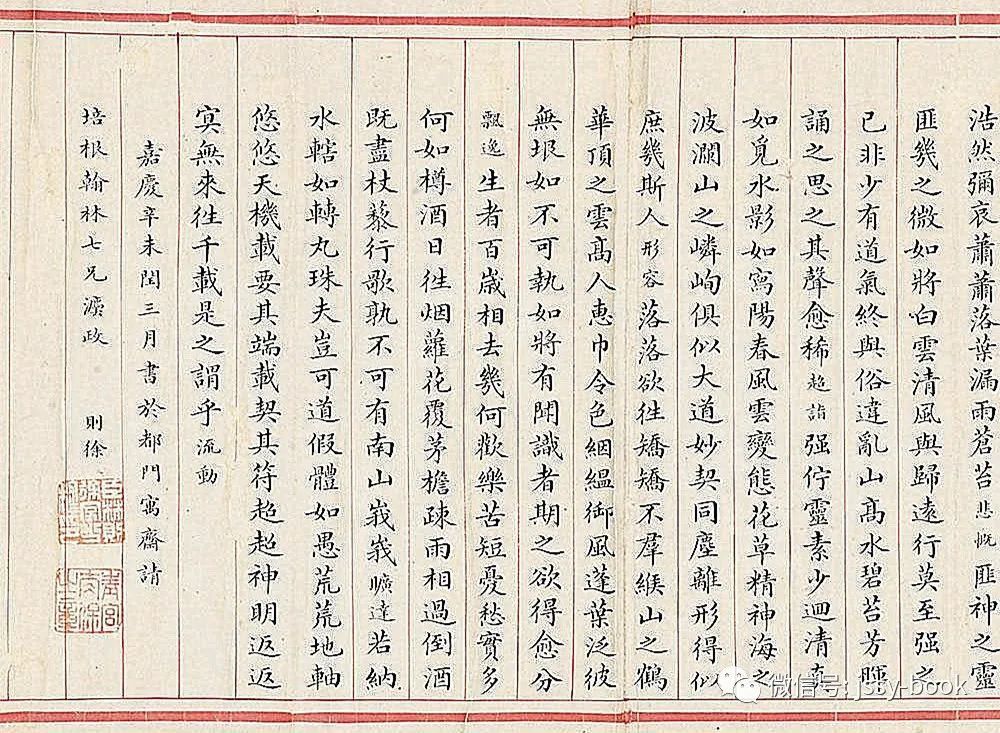 浩然彌哀蕭蕭落葉漏雨蒼苔悲慨匪神之靈
匪幾之微如將白雲清風與歸遠行莫至强之
已非少有道氣終與俗違亂山髙水碧苔芳暉
誦之思之其聲愈稀超詣强佇靈素少迴清真
如覓水影如寫陽春風雲變態花草精神海之
波瀾山之嶙峋俱似大道妙契同塵離形得似
庶幾斯人形容落落欲往矯矯不羣緱山之鶴
華頂之雲髙人惠巾令色絪緼御風蓬葉泛彼
無垠如不可執如將有聞識者期之欲得愈分
飄逸生者百歲相去幾何歡樂苦短憂愁實多
何如樽酒日往烟蘿花覆茅檐疎雨相過倒酒
既盡杖藜行歌孰不可有南山峩峩曠達若納
水轄如轉丸珠夫豈可道假體如愚荒荒地軸
悠悠天機載要其端載契其符超超神明返返
冥無來往千載是之謂乎流動
嘉慶辛未閏三月書於都門寓齋請
培根翰林七兄灋政 則徐
微信号: jssy-book